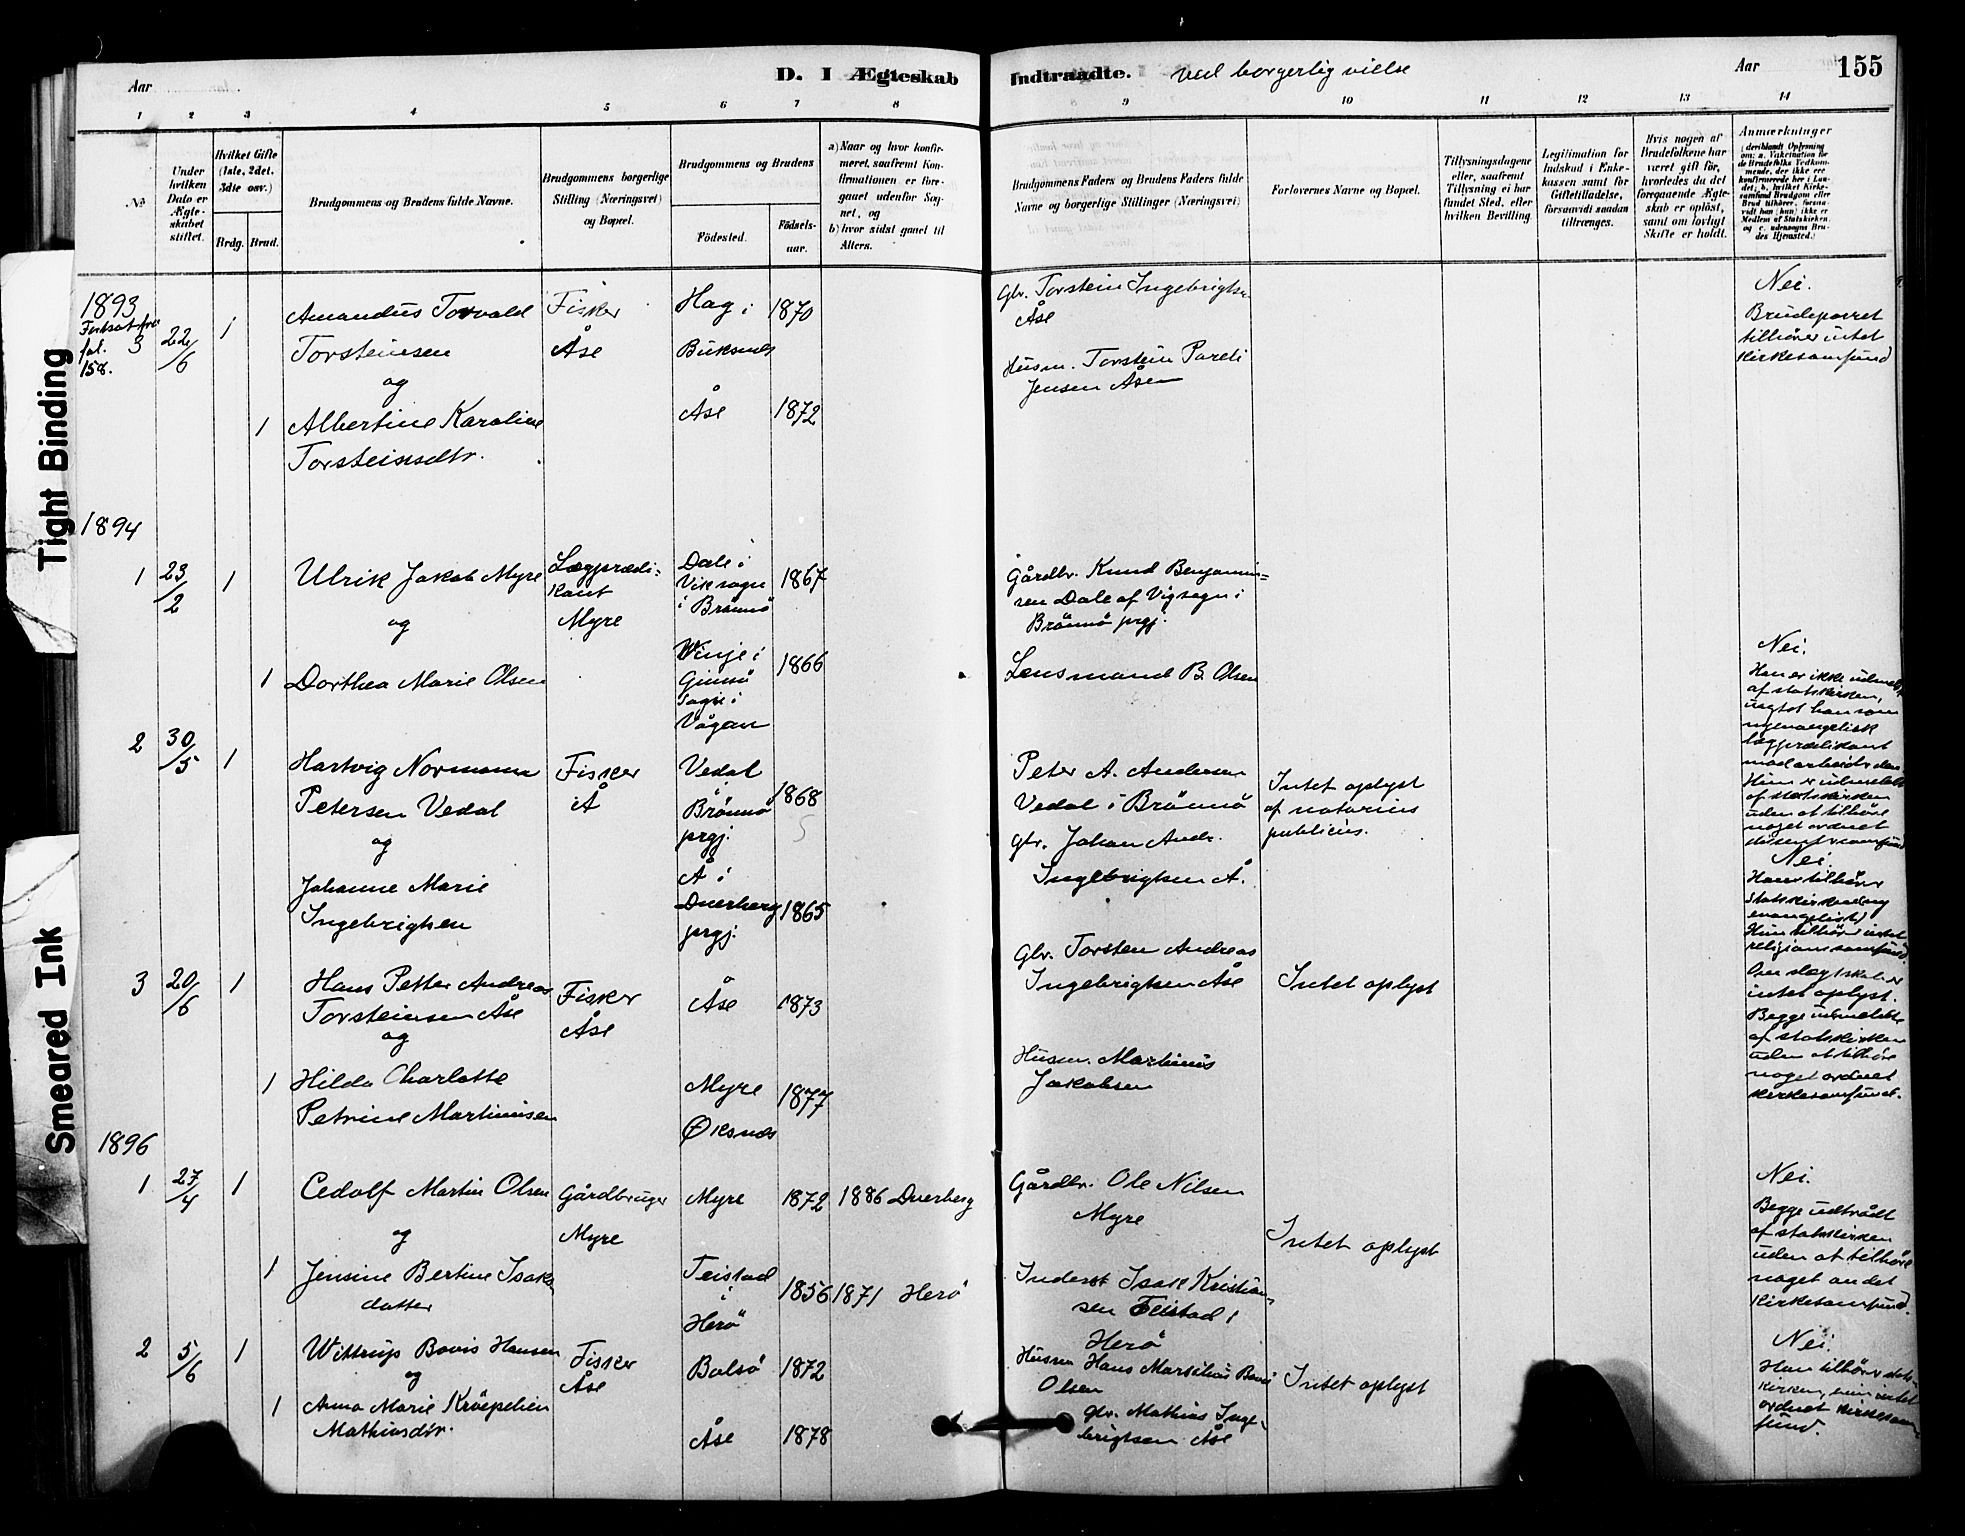 Tight Binding
Smeared Ink
Aar
D. I Ægteskab
Indtraadte. ved borgerlig vielse
Aar
155
1 2 3 4 5 6 7 8 9 10 11 12 13 14
No
Under hvilken Dato er Ægteskabet stiftet.
Hvilket Gifte (1ste, 2det, 3die osv.)
Brdg. Brud.
Brudgommens og Brudens fulde Navne.
Brudgommens borgerlige Stilling (Næringsvei) og Bopæl.
Brudgommens og Brudens
Födested. Födsels-aar.
a) Naar og hvor konfirmeret, saafremt Konfirmationen er foregaaet udenfor Sognet, og
b) hvor sidst gaaet til Alters.
Brudgommens Faders og Brudens Faders fulde Navne og borgerlige Stillinger (Næringsvei)
Forlovernes Navne og Bopæl.
Tillysningsdagene eller, saafremt Tillysning ei har fundet Sted, efter hvilken Bevilling.
Legitimation for Indskud i Enkekassen samt for Giftetilladelse, forsaavidt saadan tiltrænges.
Hvis nogen af Brudefolkene har været gift för, hvorledes da det foregaaende Ægteskab er oplöst, samt om lovligt Skifte er holdt.
Anmærkninger
1893
fol. 158.
3 22/6 1
Amandus Torvald
Torsteinsen
og
1 Albertine Karoline
Torsteinsdtr.
Fisker
Åse
Hag i
Buksnes
1870
Åse 1872
Gbr. Torstein Ingebrigtsn
Åse
Husm. Torstein Pareli
Jensen Åsen
Nei.
Brudeparret
tilhører intet
kirkesamfund
1894
1 23/2 1
Ulrik Jakob Myre
og
1 Dorthea Marie Olsen
Lægprædi-
kant
Myre
Dale i
Vik sogn
i Brønnø
1867
Vinje i
Gimsø
Sogn i
Vågan
1866
Gårdbr. Knud Benjamin-
sen Dale af Vigsogn i
Brönnö prgj.
Lensmand B. Olsen
Nei.
Han er ikke udmeldt
af statskirken,
uagtet han som
nyevangelisk
lægprædikant
modarbeider den
Hun er udmeldt
af statskirken
uden at tilhöre
noget ordnet
2 30/5 1
Hartvig Normann
Petersen Vedal
og
Johanne Marie
Ingebrigtsen
Fisker
i Å
Vedal
i
Brønnö
prgj.
1868
5
Å i
Dverberg
prgj.
1865
Peter A. Andersen
Vedal i Brönnö
Gbr. Johan Andr.
Ingebrigtsen Å.
Intet oplyst
af notarius
publicus.
Nei.
Han tilhører
statskirken
Hun tilhører intet
religionssamfund.
3 20/6 1
Hans Petter Andreas
Torsteinsen Åse
og
1 Hilda Charlotte
Petrine Martinusen
Fisker
Åse
Åse 1873
Myre
Øksnes
1877
Gbr. Torsten Andreas
Ingebrigtsen Åse
Husm. Martinus
Jakobsen
Intet oplyst
Om slægtskab er
intet oplyst.
Begge udmeldte
af statskirken
uden at tilhøre
noget ordnet
kirkesamfund.
1896
1 27/4 1
Cedolf Martin Olsen
og
1 Jensine Bertine Isaks
datter
Gårdbruger
Myre
Myre 1872 1886 Dverberg
Teistad
i
Herö
1856 1871 Herö
Gårdbr. Ole Nilsen
Myre
Inderst Isak Kristian-
sen Teistad i
Herö
Intet oplyst
Nei.
Begge udtrådt
af statskirken
uden at tilhöre
noget andet
kirkesamfund.
2 5/6 1
Wittrup Bovis Hansen
og
1 Anna Marie Kröepelien
Mathiasdtr.
Fisker
Åse
Bolsö 1872
Åse 1878
Husm Hans Marsilius
Olsen
Gbr. Mathias Inge-
brigtsen Åse
Intet oplyst
Nei.
Han tilhører stats-
kirken, hun intet
ordnet kirkesam-
fund.